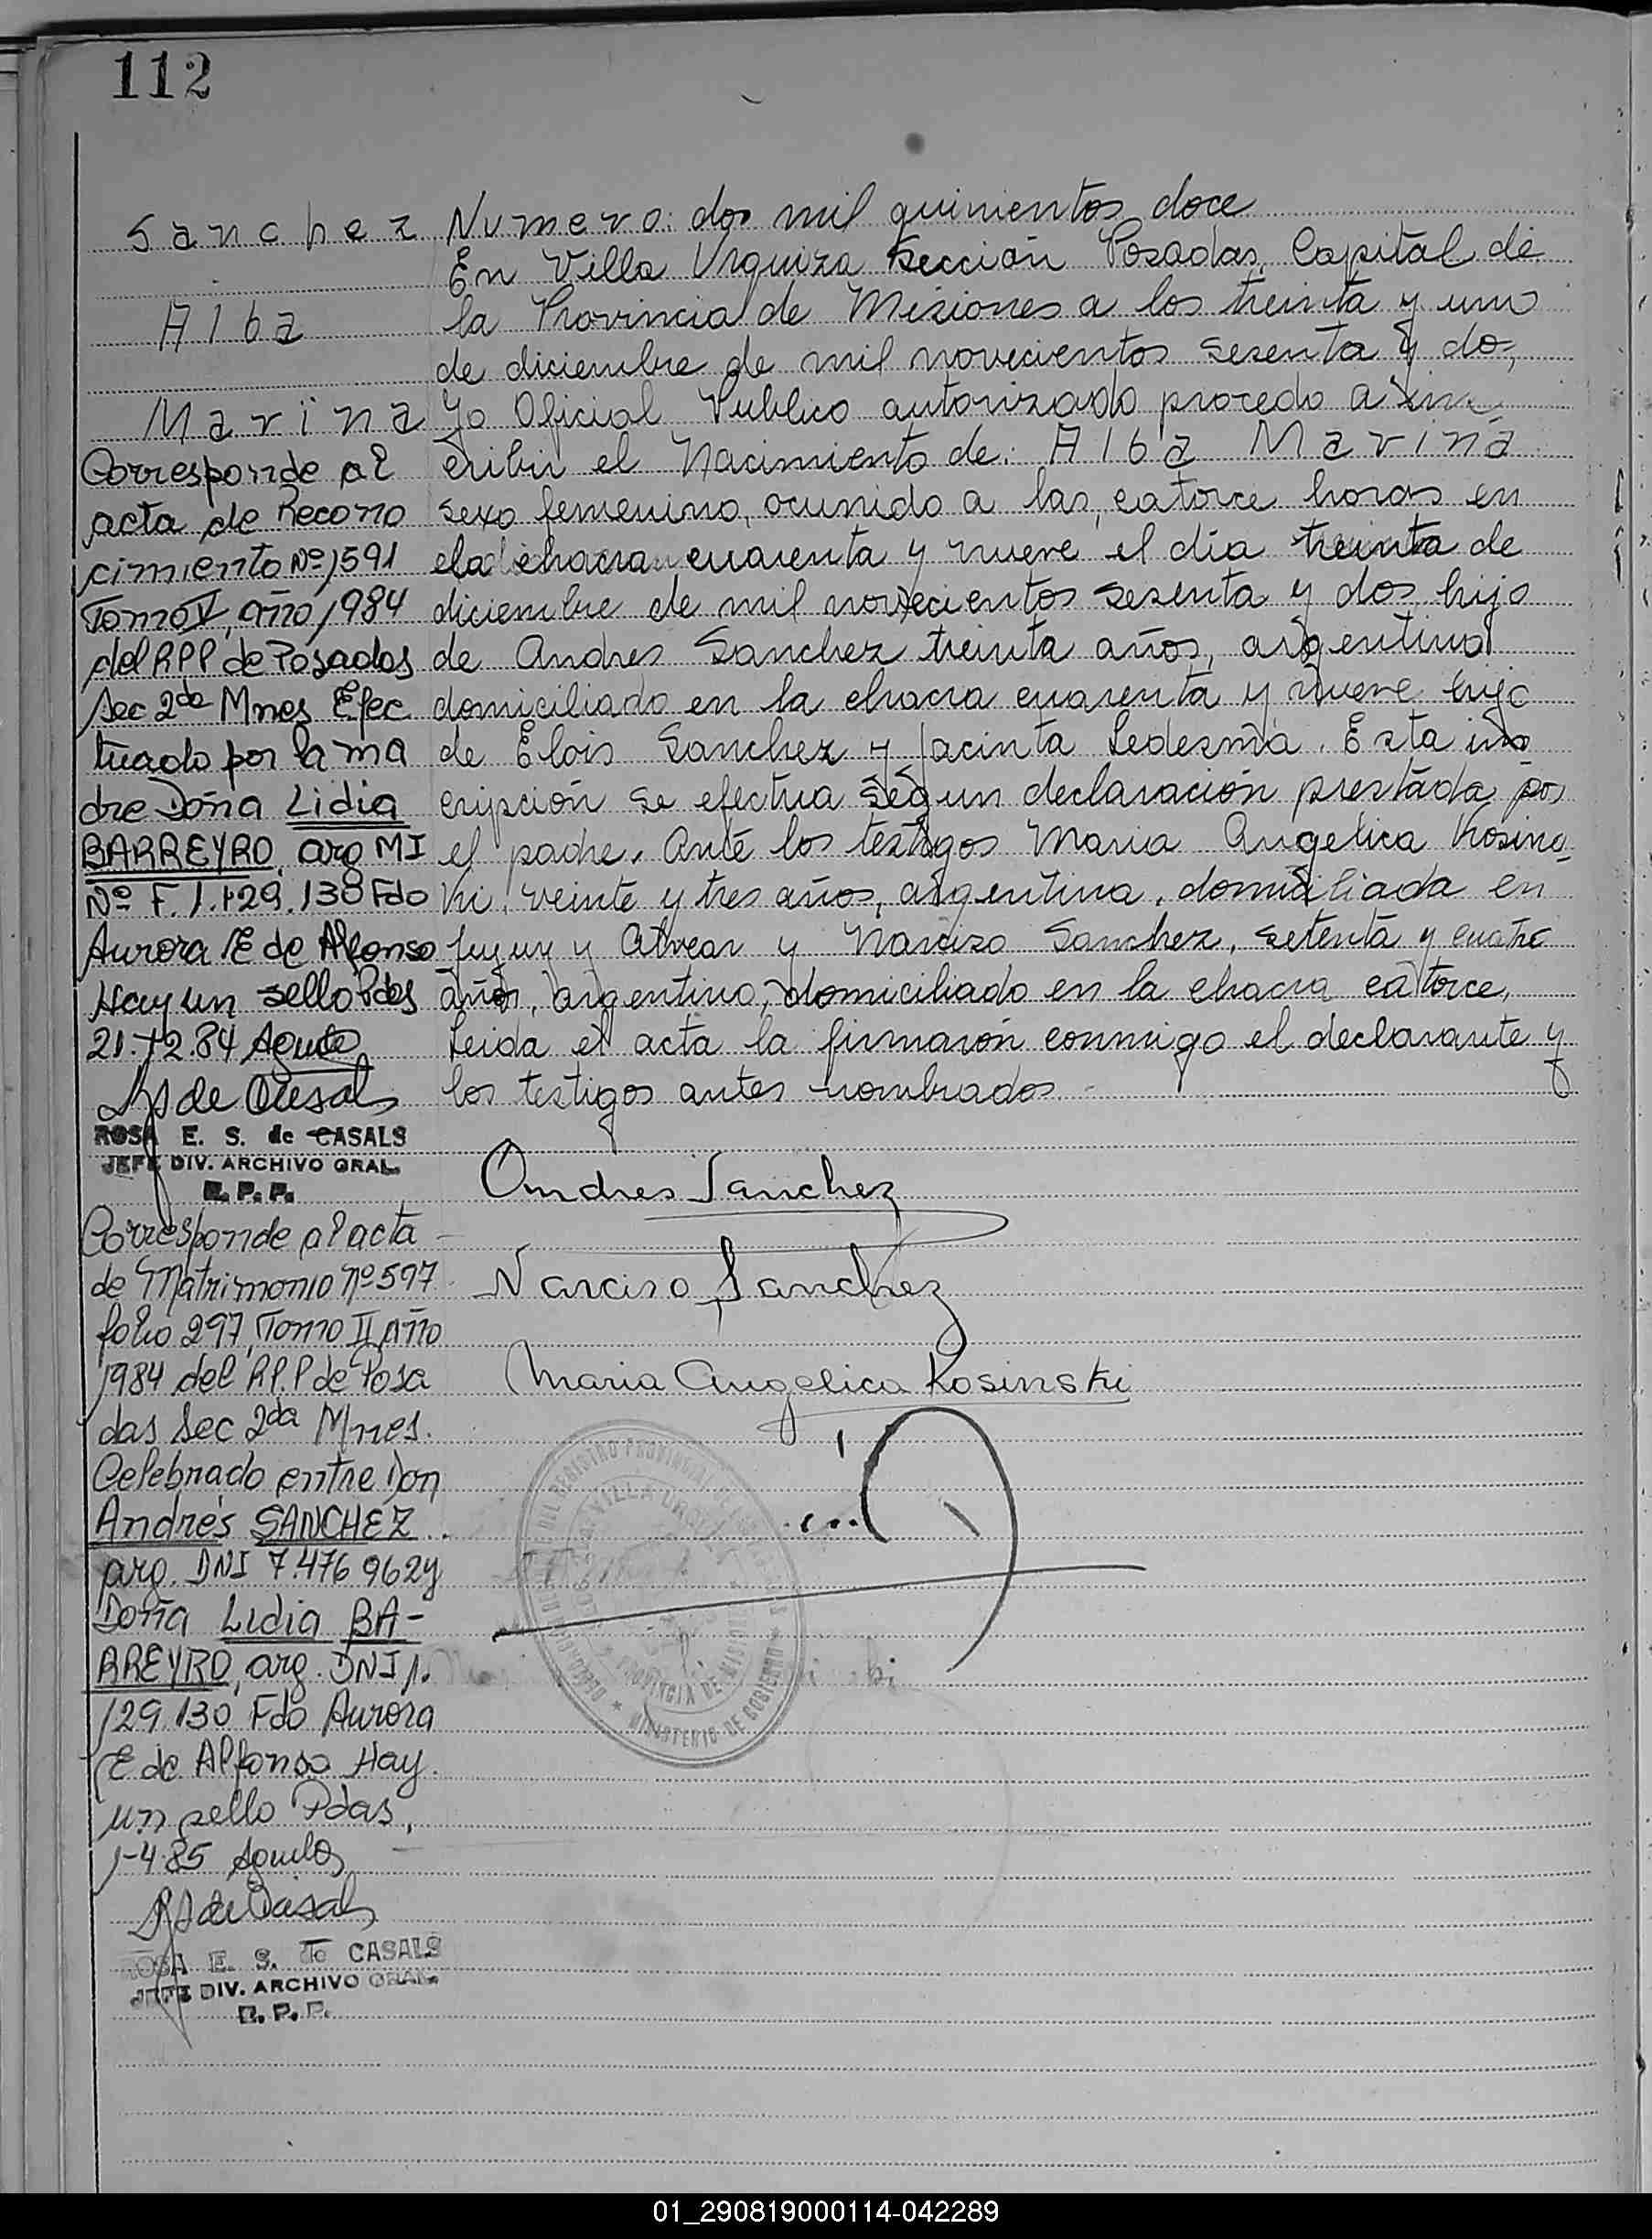 112
Sanchez
Alba
Marina
Numero: dos mil quinientos doce
En Villa Urquiza Sección Posadas, Capital de
la Provincia de Misiones a los treinta y uno
de diciembre de mil novecientos sesenta y dos,
Yo Oficial Publico autorizado procedo a ins
cribir el Nacimiento de: Alba Marina
sexo femenino, ocurrido a las, catorce horas en
chacra cuarenta y nueve el día treinta de
diciembre de mil novecientos sesenta y dos, hijo
de Andres Sanchez treinta años, argentino
domiciliado en la chacra cuarenta y nueve hijo
de Elois Sanchez y Jacinta Ledesma. Esta ins
cripción se efectua según declaración prestada por
el padre. Ante los testigos Maria Angelica Kosins-
ki, veinte y tres años, argentina, domiciliada en
Jujuy y Alvear y Narciso Sanchez, setenta y cuatro
años, argentino, domiciliado en la chacra catorce.
Leida el acta la firmaron conmigo el declarante y
los testigos antes nombrados.-
Andres Sanchez
Narciso Sanchez
Maria Angelica Kosinski
Corresponde al
acta de Recono
cimiento Nº 1591
Tomo V, año 1984
del RPP de Posadas
Sec 2da Mnes Efec
tuado por la ma
dre Doña Lidia
BARREYRO, arg MI
Nº F. 1.129.130 Fdo
Aurora E de Alfonso
Hay un sello Pdas
21-12.84
ROSA E. S. de CASALS
JEFE DIV. ARCHIVO GRAL.
R. P. P.
Corresponde al acta
de Matrimonio Nº 597
folio 297, Tomo II Año
1984 del R.P.P de Posa
das Sec 2da Mnes.
Celebrado entre Don
Andrés SANCHEZ
arg. DNI 7.476 962 y
Doña Lidia BA-
RREYRO, arg. DNI 1.
129.130 Fdo Aurora
E de Alfonso Hay
un sello Pdas,
1-4-85
ROSA E. S. de CASALS
JEFE DIV. ARCHIVO GRAL.
R. P. P.
VILLA URQUIZA
PROVINCIA DE MISIONES
MINISTERIO DE GOBIERNO
01_290819000114-042289